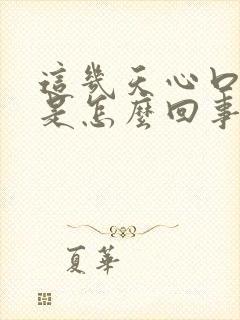 這幾天心口
是怎麼回事
夏華